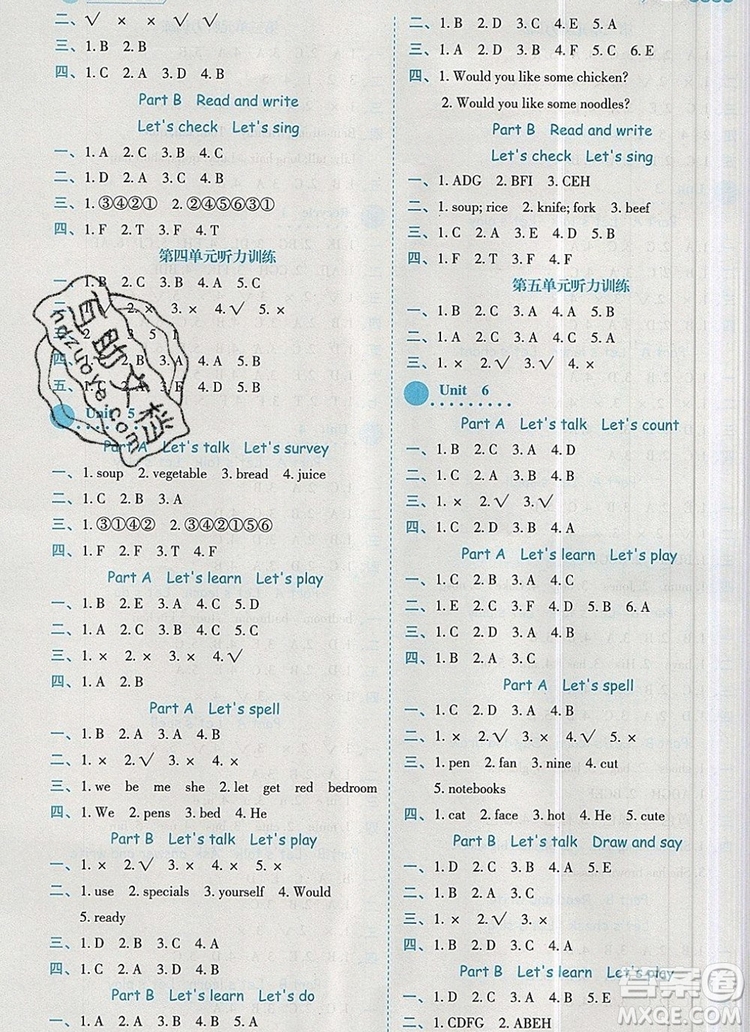 二、√ × × √ √
三、1. B 2. C 3. D 4. A 5. C
四、1. C 2. A 3. D 4. B
Part B Read and write
Let's check Let's sing
一、1. A 2. C 3. B 4. C
二、1. C 2. A 3. B 4. A 5. C
三、1. ③④②① 2. ②④⑤⑥③①
四、1. F 2. T 3. F 4. T
第四单元听力训练
一、1. B 2. C 3. A 4. A 5. C
2. × 3. × 4. √ 5. ×
3 5 1
四、1. C 2. B 3. A 4. A 5. B
五、1. C 2. A 3. C 4. E 5. B
Unit 5
Part A Let's talk Let's survey
一、1. soup 2. vegetable 3. bread 4. juice
二、1. C 2. B 3. A
三、1. ③①④② 2. ③④②①⑤⑥
四、1. F 2. F 3. T 4. F
Part A Let's learn Let's play
一、1. A 2. B 3. A 4. C 5. D
二、1. D 2. E 3. A 4. C 5. B
三、1. × 2. × 3. × 4. √
四、1. A 2. B
Part A Let's spell
一、1. B 2. A 3. C 4. A 5. B
二、1. × 2. √ 3. √ 4. × 5. √
三、1. we be me she 2. let get red bedroom
四、1. We 2. pens 3. bed 4. He
Part B Let's talk Let's play
一、1. × 2. √ 3. × 4. √ 5. ×
二、1. use 2. specials 3. yourself 4. Would
5. ready
三、1. D 2. D 3. A 4. C 5. B
四、1. C 2. A 3. D 4. B
Part B Let's learn Let's do
一、1. B 2. A 3. C 4. A 5. B
三、1. B 2. A 3. D 4. F 5. C 6. E
四、1. Would you like some chicken?
2. Would you like some noodles?
Part B Read and write
Let's check Let's sing
一、1. ADG 2. BFI 3. CEH
二、1. soup; rice 2. knife; fork 3. beef
三、1. B 2. C 3. A 4. C
四、1. F 2. F 3. T 4. F
第五单元听力训练
一、1. B 2. C 3. A 4. A 5. B
二、1. C 2. B 3. A 4. D
三、1. × 2. √ 3. √ 4. ×
Unit 6
Part A Let's talk Let's count
一、1. C 2. B 3. A 4. D
二、1. A 2. C 3. B 4. A
三、1. × 2. × 3. √ 4. √
四、1. D 2. B 3. C 4. A
Part A Let's learn Let's play
一、1. B 2. C 3. A 4. C 5. A
二、1. E 2. C 3. F 4. D 5. B 6. A
三、1. C 2. D 3. B 4. A
四、1. B 2. A 3. C
Part A Let's spell
一、1. C 2. D 3. A 4. B
二、1. × 2. √ 3. × 4. √
三、1. pen 2. fan 3. nine 4. cut
5. notebooks
四、1. cat 2. face 3. hot 4. He 5. cute
Part B Let's talk Draw and say
一、1. D 2. C 3. B 4. A 5. E
二、1. B 2. C 3. A 4. C 5. A
三、1. × 2. × 3. √ 4. √ 5. ×
四、1. C 2. B 3. D 4. A
Part B Let's learn Let's play
一、1. D 2. A 3. B 4. C 5. E
二、1. CDFG 2. ABEH
百助文档
hdzuoye.com
答案圈
MXQE.COM